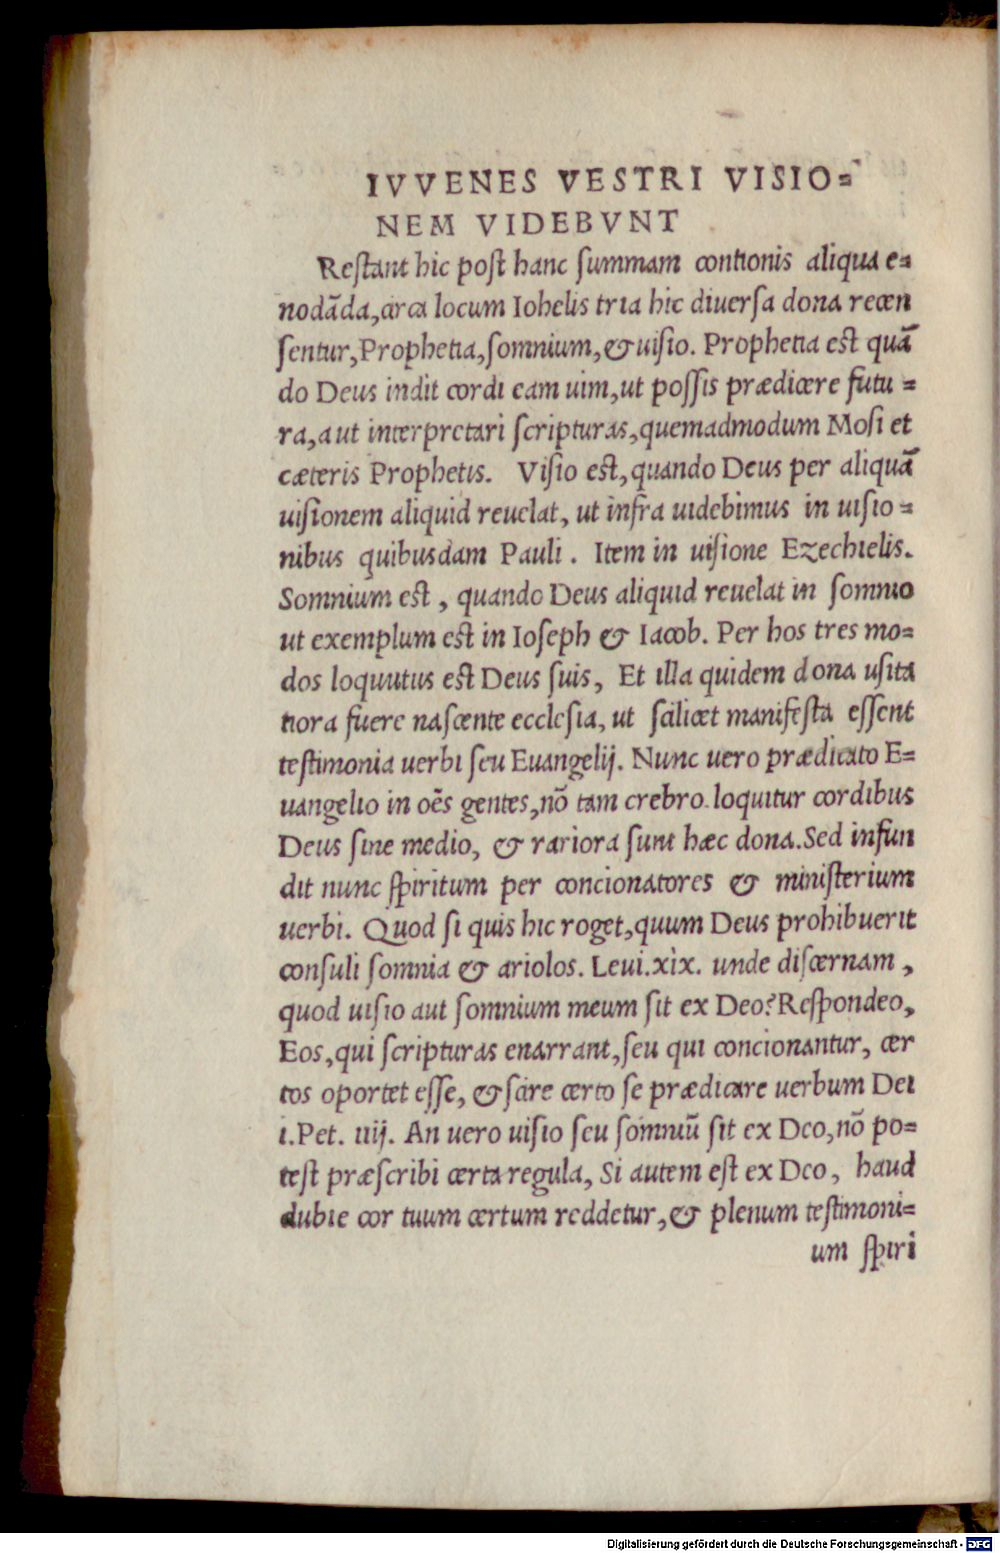 IVVENES VESTRI VISIO=
NEM VIDEBVNT
Restant hic post hanc summam contionis aliqua e=
nodãda, circa locum Iohelis tria hic diuersa dona recen
sentur, Prophetia, somnium, & uisio. Prophetia est quã
do Deus indit cordi eam uim, ut possis prædicere futu=
ra, aut interpretari scripturas, quemadmodum Mosi et
cæteris Prophetis. Visio est, quando Deus per aliquã
uisionem aliquid reuelat, ut infra uidebimus in uisio=
nibus quibusdam Pauli. Item in uisione Ezechielis.
Somnium est, quando Deus aliquid reuelat in somnio
ut exemplum est in Ioseph & Iacob. Per hos tres mo=
dos loquutus est Deus suis, Et illa quidem dona usita
tiora fuere nascente ecclesia, ut scilicet manifesta essent
testimonia uerbi seu Euangelij. Nunc uero prædicato E=
uangelio in oẽs gentes, nõ tam crebro loquitur cordibus
Deus sine medio, & rariora sunt hæc dona. Sed infun
dit nunc spiritum per concionatores & ministerium
uerbi. Quod si quis hic roget, quum Deus prohibuerit
consuli somnia & ariolos. Leui. xix. unde discernam,
quod uisio aut somnium meum sit ex Deo? Respondeo,
Eos, qui scripturas enarrant, seu qui concionantur, cer
tos oportet esse, & scire certo se prædicare uerbum Dei
i. Pet. iiij. An uero uisio seu somniũ sit ex Deo, nõ po=
test præscribi certa regula, Si autem est ex Deo, haud
dubie cor tuum certum reddetur, & plenum testimoni=
um spiri
Digitalisierung gefördert durch die Deutsche Forschungsgemeinschaft - DFG